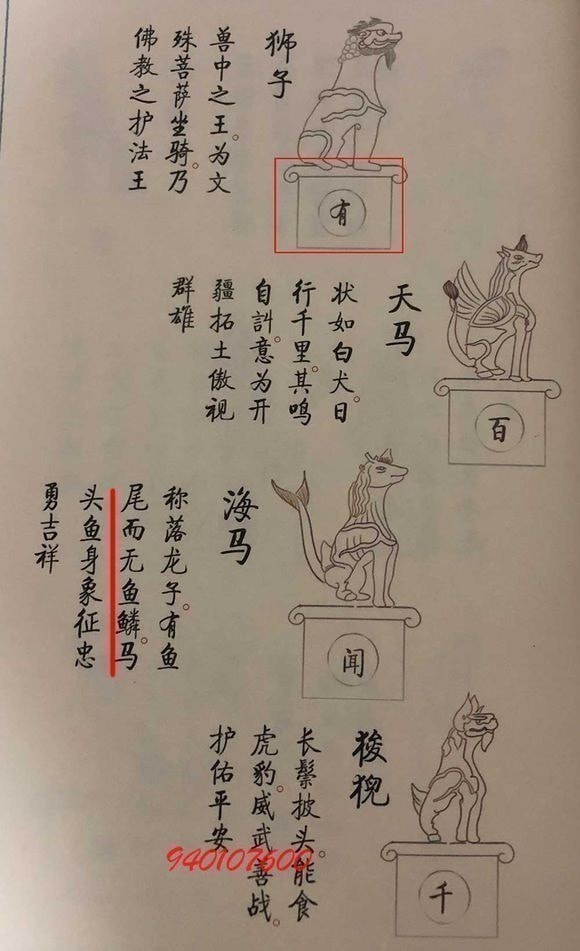 狮子
兽中之王。为文
殊菩萨坐骑。乃
佛教之护法王
有
天马
状如白犬。日
行千里。其鸣
自訆。意为开
疆拓土傲视
群雄
百
海马
称落龙子。有鱼
尾而无鱼鳞。马
头鱼身象征忠
勇吉祥
闻
狻猊
长鬃披头。能食
虎豹。威武善战。
护佑平安
千
940107600